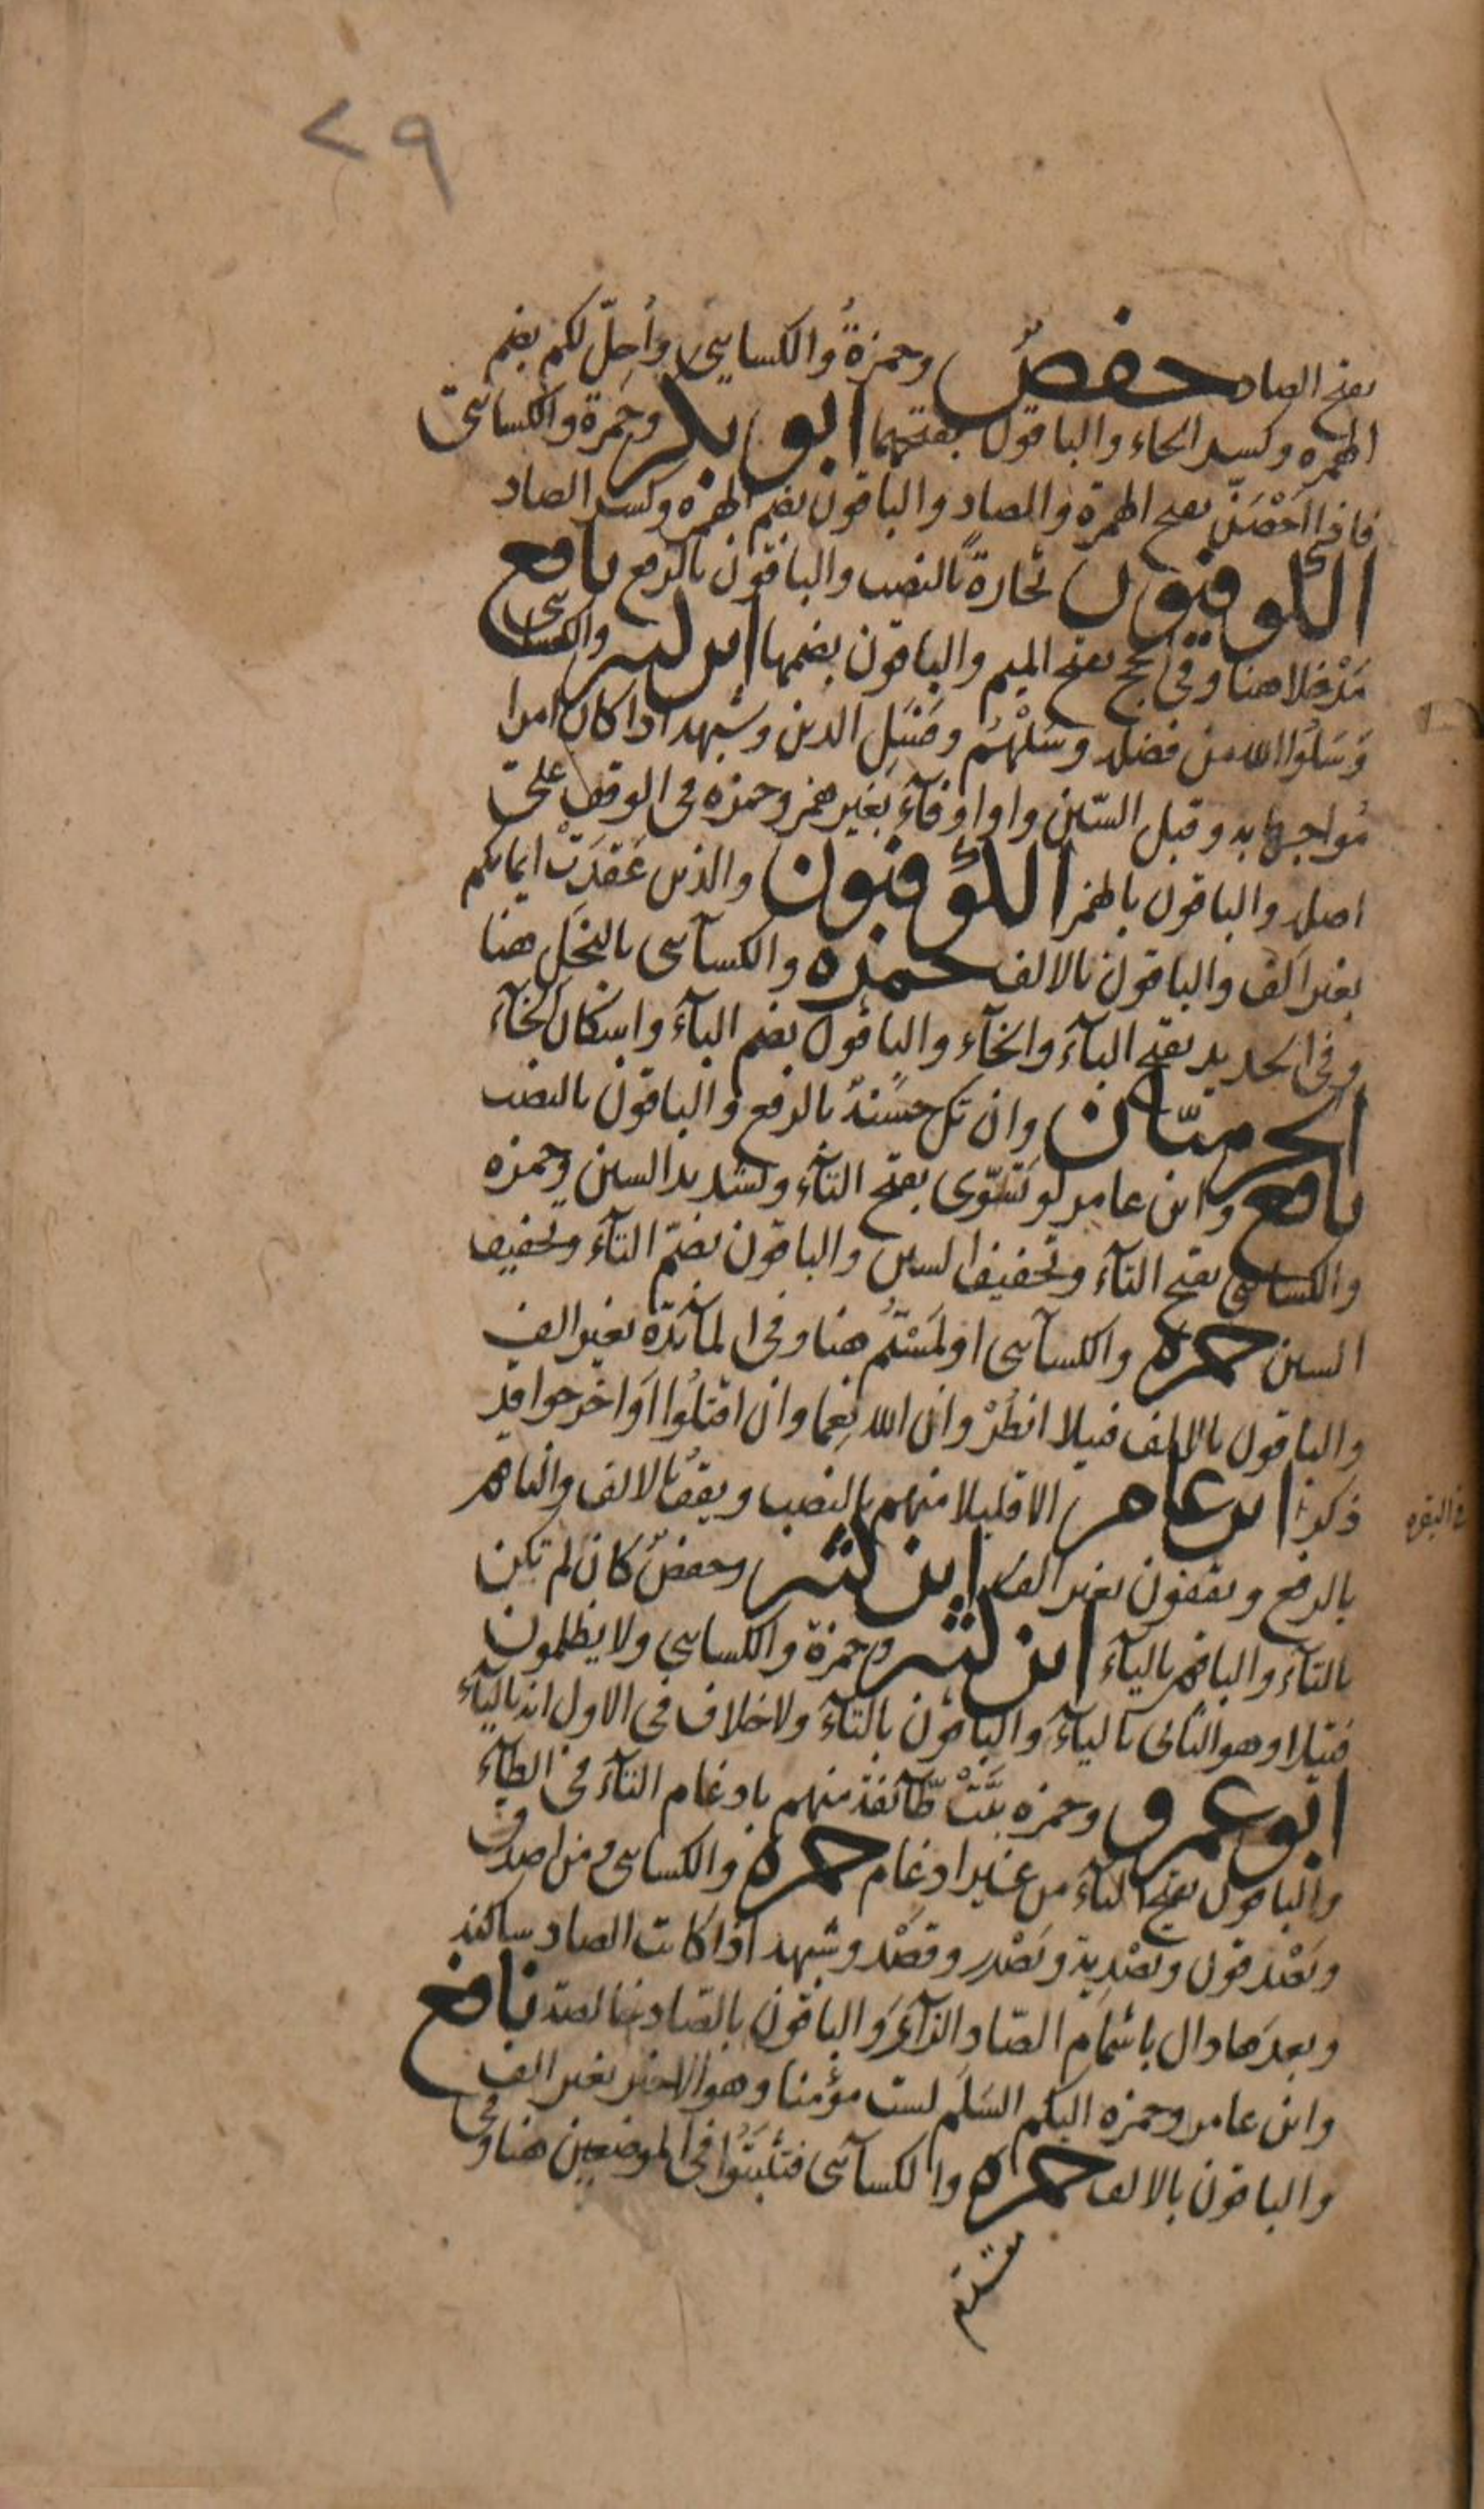 ٧٩
بفتح الصاد حفصٌ وحمزةُ والكسايي وأُحِلّ لكم بضم
الهمزه وكسر الحاء والباقون بفتحهما ابو بكر وحَمزة والكسائي
فاذا اَحْصَنّ بفتح الهمزة والصاد والباقون بضم الهمزه وكسر الصاد
الكوفيون تجارةً بالنصب والباقون بالرفع نافع
مَدْخلا هنا وفي الحج بفتح الميم والباقون بضمها ابن كثير والكسائي
وَسَلُوا الله من فضله وسَلْهُم وفَسَلِ الذين وشبهه اذا كان امرا
مُواجها به وقبل السّين واو او فآء بغير همز وحمزه في الوقف على
اصله والباقون بالهمز الكوفيون والذين عَقَدَتْ ايمانكم
بغير الف والباقون بالالف حمزه والكسآسى بالبَخَلِ هنا
وفي الحديد بفتح البآء والخآء والباقون بضم البآء واسكان الخآء
الحرميّان وان تك حسنةٌ بالرفع والباقون بالنصب
نافع وابن عامر لو تَسّوّى بفتح التآء وتشديد السين وحمزه
والكسائى بفتح التآء وتخفيف السين والباقون بضمّ التآء وتخفيف
السين حمزه والكسآسى او لَمَسْتُمُ هنا وفي المآئدة بغير الف
والباقون بالالف فتيلا انظُرْ وان الله نِعِما وان اقتلُوا اَو اخرجوا قد
ذكر ابن عامر الا قليلا منهم بالنصب ويقفُ بالالف والباقون
في البقره
بالرفع ويقفون بغير الف ابن كثير وحفصٌ كان لم تكن
بالتآء والباقون باليآء ابن كثير وحمزة والكسايي ولا يظلمون
فتيلا وهو الثانى باليآء والباقون بالتآء ولا خلاف في الاول انه باليآء
ابو عمرو وحمزه بَيَّتْ طّآئفة منهم بادغام التآء في الطآء
والباقون بفتح التآء من غير ادغام حمزه والكسائى ومن اصدق
ويَصْدفون وتصْدِية ويَصْدر وقصْد وشبهه اذا كانت الصاد ساكنه
وبعدَها دال باشمَام الصّاد الزآىَ والباقون بالصّاد خالصة نافع
وابن عامر وحمزه اليكم السَلَم لست مؤمنا وهو الاخير بغير الف
والباقون بالالف حمزه والكسآئى فتثبَتُوا في الموضعين هنا وفي